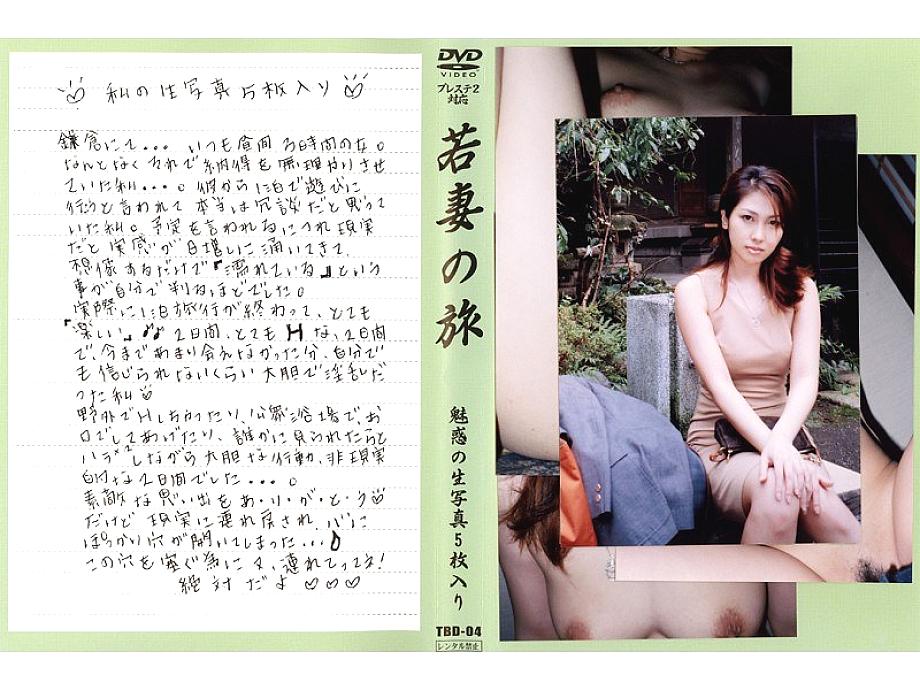 私の生写真5枚入り
鎌倉にて...いつも昼間3時間の女。
なんとなくそれで納得を無理やりさせ
ていた私...。彼から1泊で遊びに
行うと言われて本当は冗談だと思って
いた私。予定を言われるにつれ現実
だと実感が日増しに涌いてきて、
想像するだけで『濡れている』という
事が自分で判るほどでした。
実際に1泊旅行が終わって、とても
『楽しい』♪♪2日間、とてもHな、2日間
で、今まであまり会えなかった分、自分で
も信じられないくらい大胆で淫乱だ
った私♡
野外でHしちゃったり、公衆浴場で、お
口でしてあげたり、誰かに見られたらと
ハラ×2しながら大胆な行動、非現実
的な2日間でした...。
素敵な思い出をあ・り・が・と・う♡
だけど現実に連れ戻され、心に
ぽっかり穴が開いてしまった...♪
この穴を塞ぐ為に又、連れてってネ!
絶対だよ♡♡♡
DVD
VIDEO
プレステ2
対応
若妻の旅
魅惑の生写真5枚入り
TBD-04
レンタル禁止